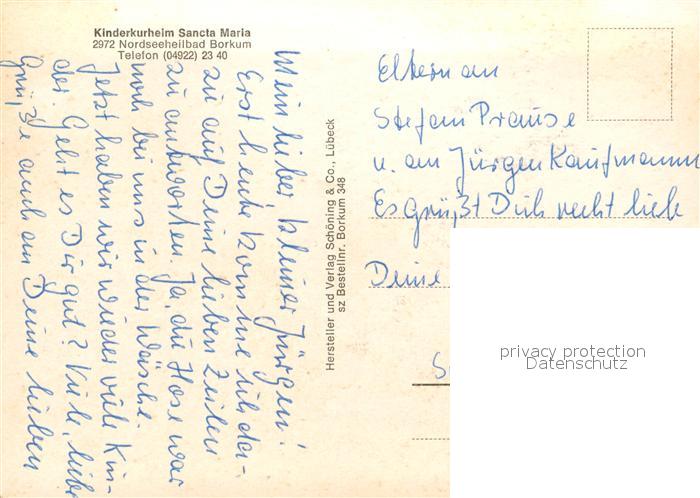 Kinderkurheim Sancta Maria
2972 Nordseeheilbad Borkum
Telefon (04922) 23 40
Mein lieber, kleiner Jürgen!
Erst heute komme ich da-
zu auf Deine lieben Zeilen
zu antworten. Ja, die Hose war
noch bei uns in der Wäsche.
Jetzt haben wir wieder viele Kin-
der. Geht es Dir gut? Viele, liebe
Grüße auch an Deine lieben
Hersteller und Verlag Schöning & Co., Lübeck
sz Bestellnr. Borkum 348
Eltern an
Stefan Prause
u. an Jürgen Kaufmann
Es grüßt Dich recht lieb
Deine
privacy protection
Datenschutz